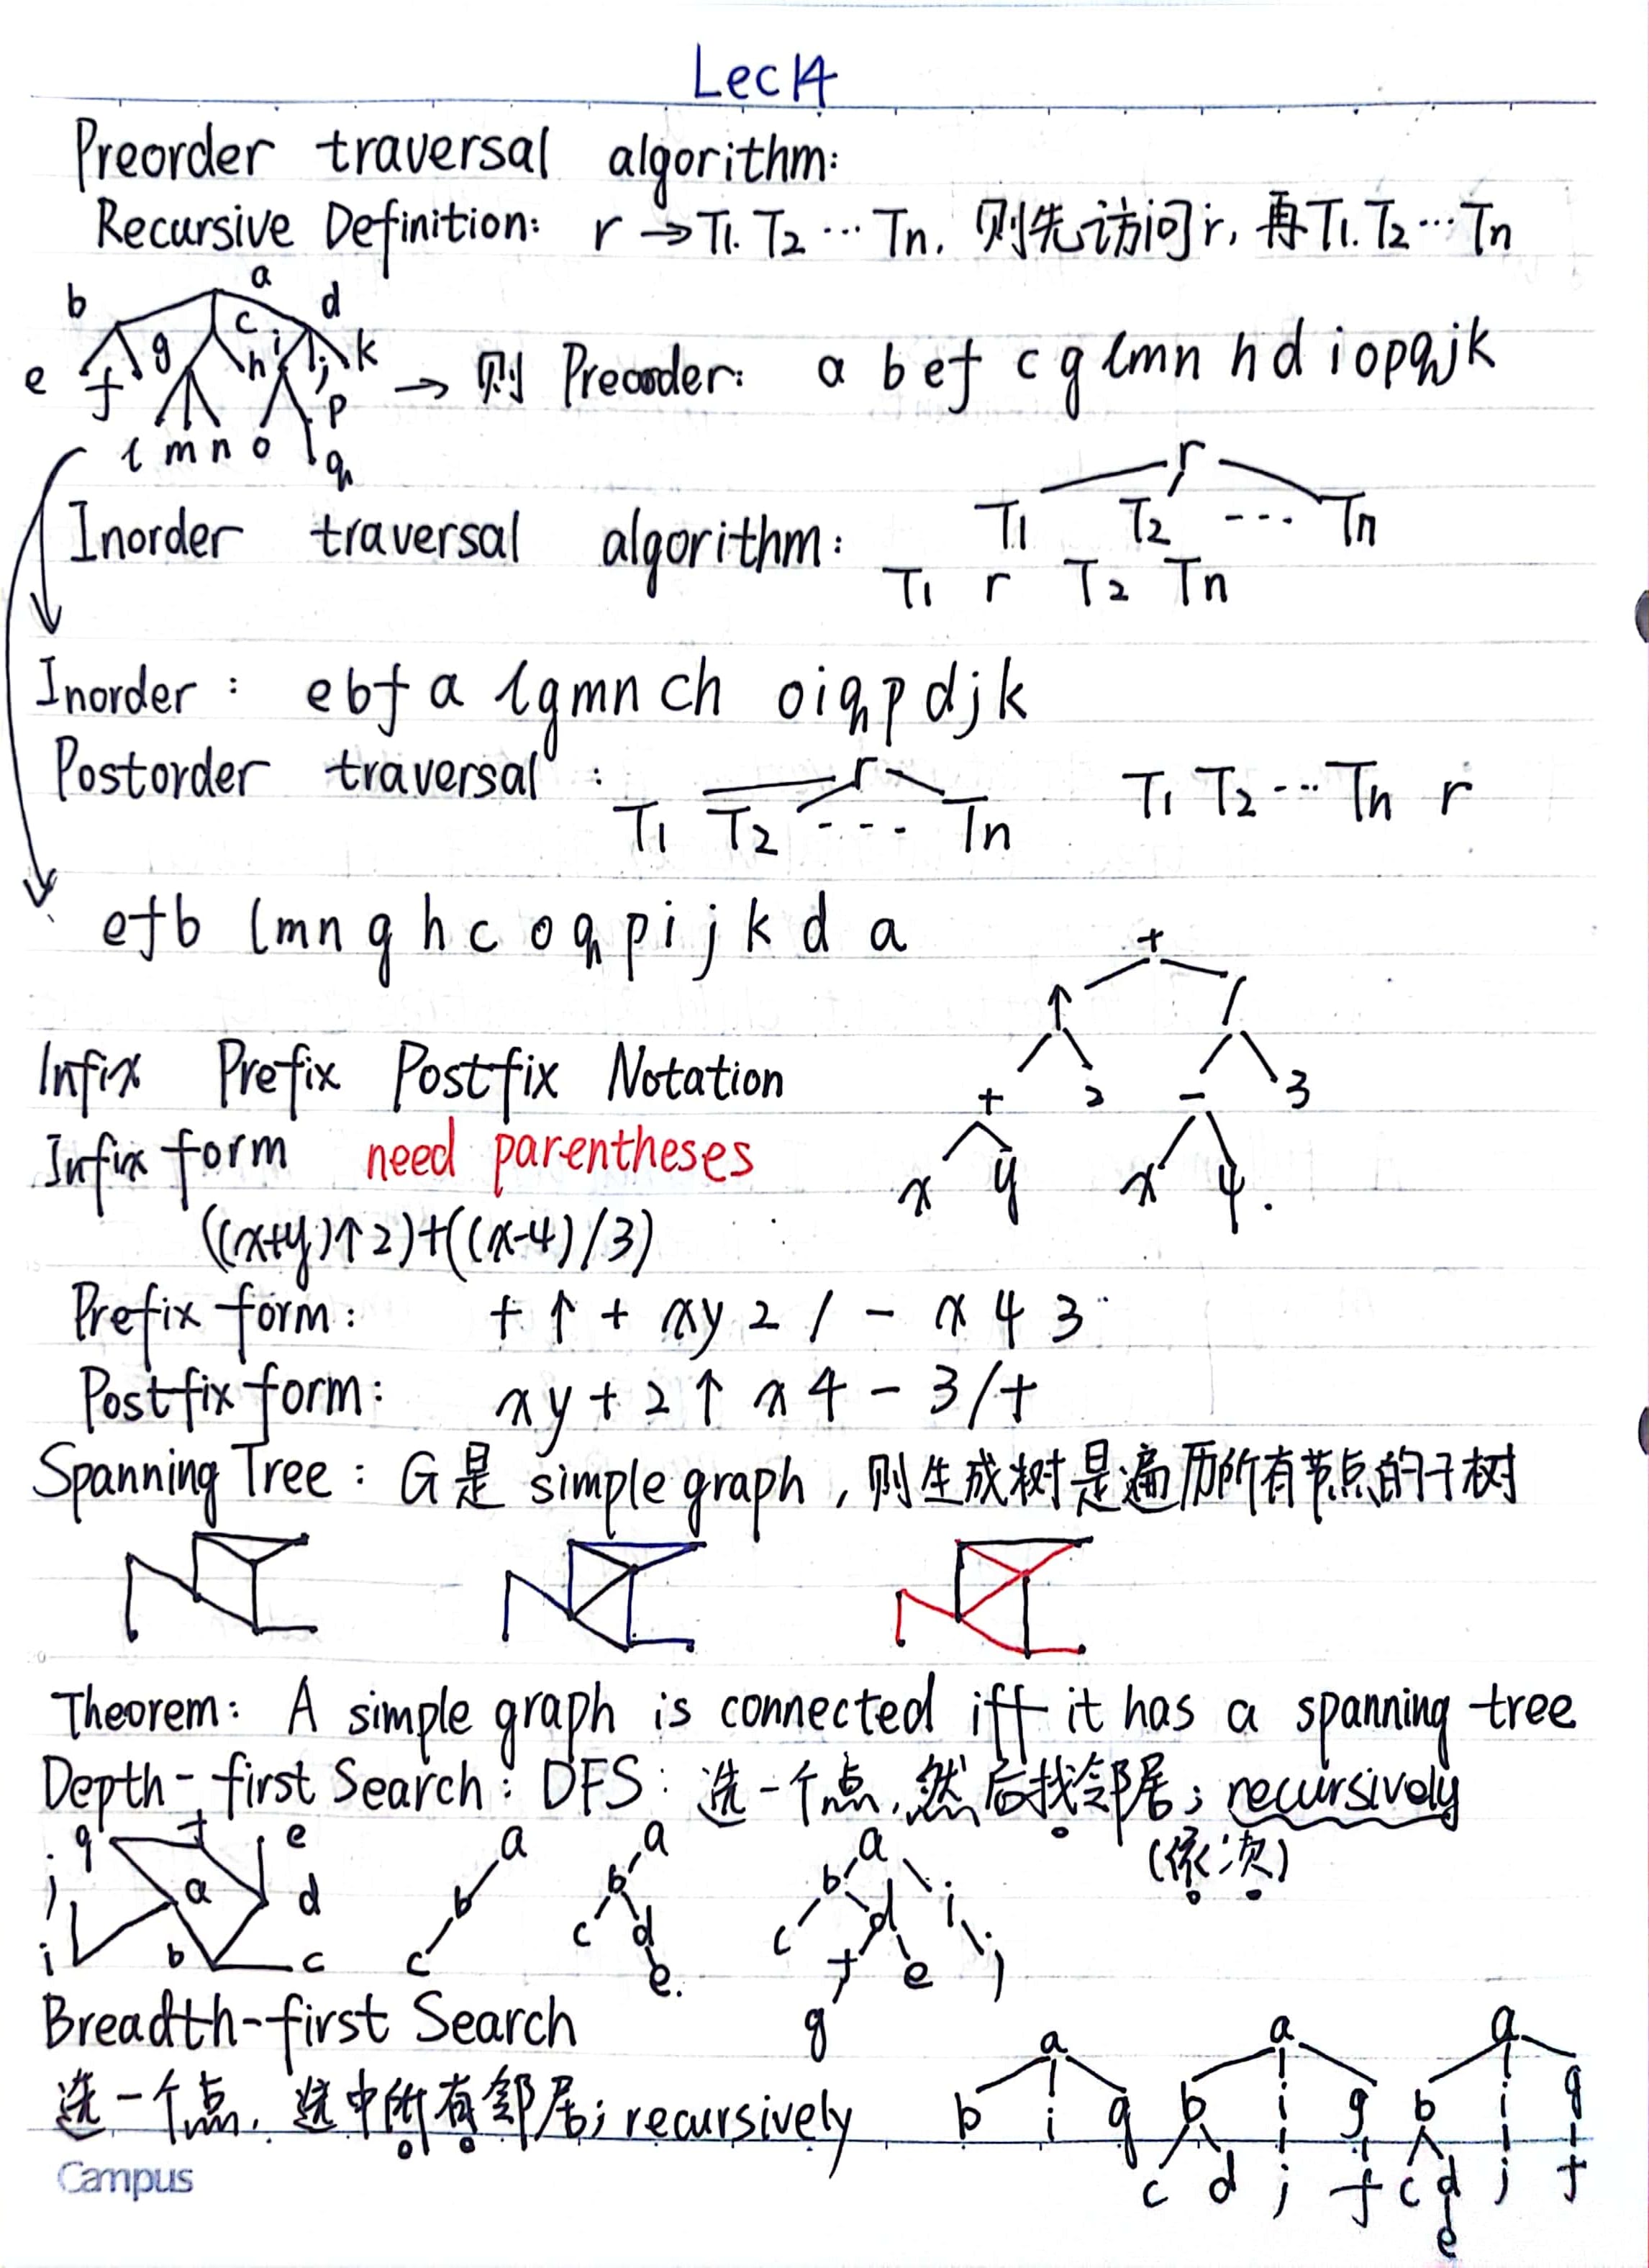 Lec14
Preorder traversal algorithm:
Recursive Definition: r → T1. T2 ··· Tn. 则先访问r, 再T1. T2 ··· Tn
a
b c d
e f g h i j k
l m n o p
q
→ 则 Preorder: a b e f c g l m n h d i o p q j k
r
T1 T2 --- Tn
Inorder traversal algorithm:
T1 r T2 Tn
Inorder: e b f a l g m n c h o i q p d j k
Postorder traversal:
r
T1 T2 ---- Tn
T1 T2 ··· Tn r
e f b l m n g h c o q p i j k d a
+
↑ /
+ 2 - 3
x y x 4.
Infix Prefix Postfix Notation
Infix form need parentheses
((x+y)↑2)+((x-4)/3)
Prefix form: + ↑ + x y 2 / - x 4 3
Postfix form: x y + 2 ↑ x 4 - 3 / +
Spanning Tree: G是 simple graph, 则生成树是遍历所有节点的子树
Theorem: A simple graph is connected iff it has a spanning tree
Depth-first Search: DFS: 选一个点, 然后找邻居; recursively
(依次)
g f e
j a d
i b c
a
b
c
a
b
c d
e.
a
b i
c d j
f e
g
Breadth-first Search
选一个点, 选中所有邻居; recursively
a
b i g
a
b i g
c d j f
a
b i g
c d j f
e
Campus